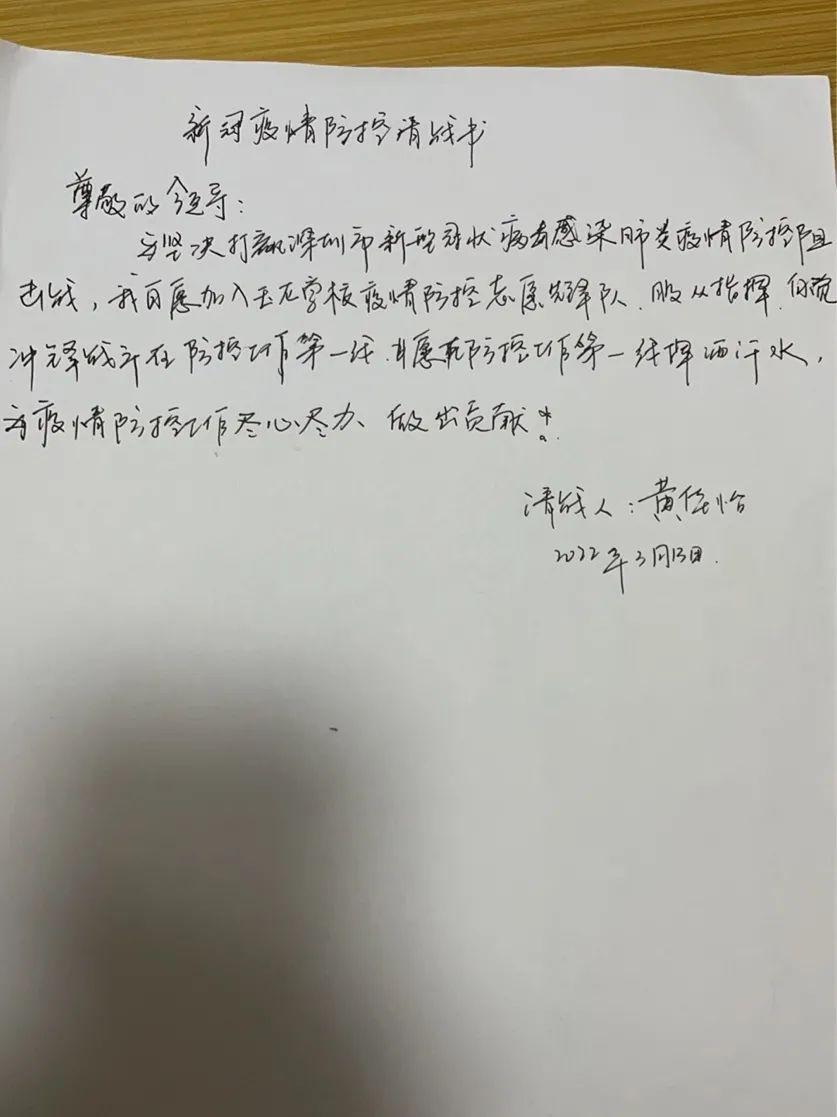 新冠疫情防控请战书
尊敬的领导：
为坚决打赢深圳市新型冠状病毒感染肺炎疫情防控阻
击战，我自愿加入玉龙学校疫情防控志愿先锋队、服从指挥、
冲锋战斗在防控工作第一线、甘愿在防控工作第一线挥洒汗水，
为疫情防控工作尽心尽力、做出贡献！
请战人：黄佳怡
2022年3月13日.